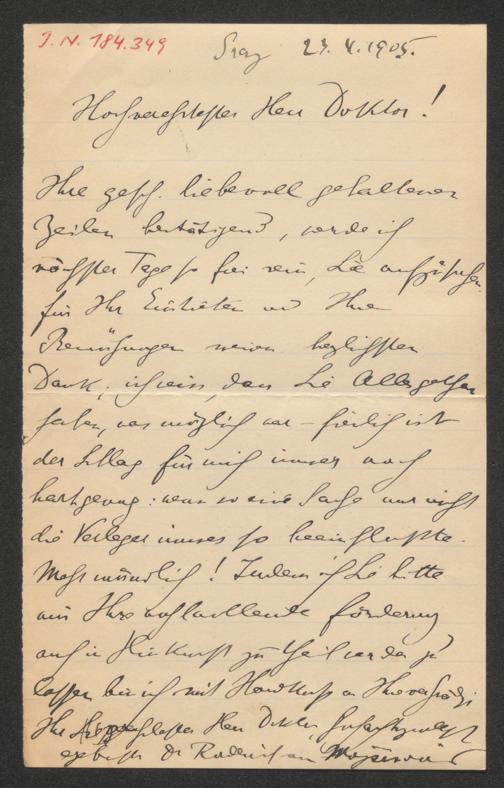 J. N. 184.349
Graz 27. V. 1905.
Hochverehrtester Herr Doktor!
Ihre gesch. liebevoll gehaltenen
Zeilen bestätigend, werde ich
nächster Tage so frei sein, Sie aufzusuchen.
für Ihr Eintreten und Ihre
Bemühungen meinen herzlichsten
Dank; ich weiss, dass Sie Alles gethan
haben, was möglich war – freilich ist
der Schlag für mich immer noch
hart genug: wenn so eine Sache nur nicht
die Verleger immer so beeinflußte.
Mehr mündlich! Indem ich Sie bitte
mir Ihre wohlwollende Förderung
auch in Hinkunft zu Theil werden zu
lassen bin ich mit Handkuß an Ihre
Ihr Herr Doktor
ergebenster Dr